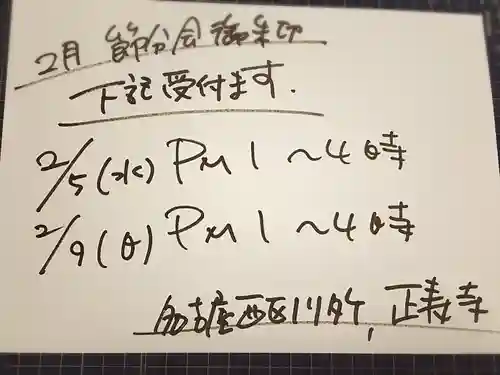 2月 節分会御朱印
下記受付ます.
2/5(水) PM 1 ~4時
2/9(日) PM 1 ~4時
名古屋西区 正寿寺